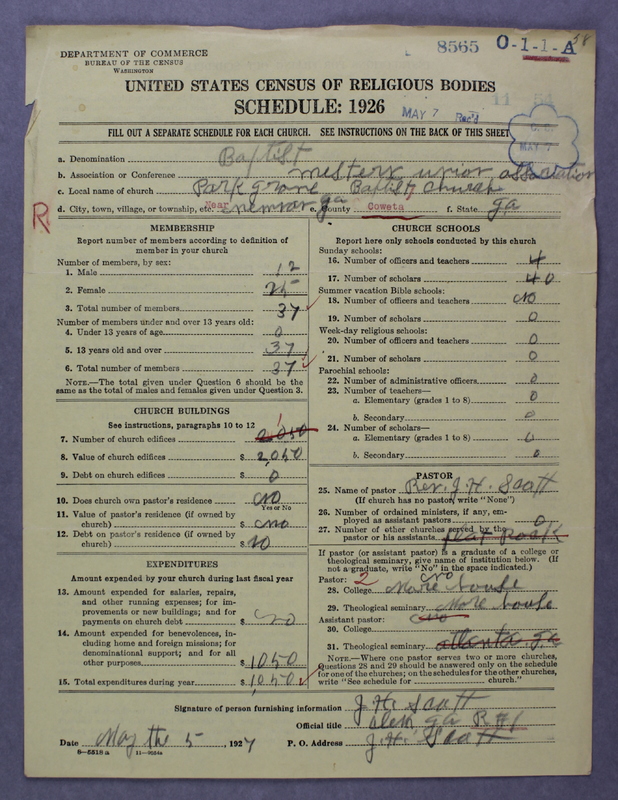 DEPARTMENT OF COMMERCE
BUREAU OF THE CENSUS
WASHINGTON
8565 O-1-1-A 58
UNITED STATES CENSUS OF RELIGIOUS BODIES
SCHEDULE: 1926
MAY 7 Rec'd
FILL OUT A SEPARATE SCHEDULE FOR EACH CHURCH. SEE INSTRUCTIONS ON THE BACK OF THIS SHEET
MAY 7
a. Denomination Baptist
b. Association or Conference western union association
c. Local name of church Park grove Baptist church
R.
d. City, town, village, or township, etc. Near ga e. County Coweta f. State ga
MEMBERSHIP
Report number of members according to definition of
member in your church
Number of members, by sex:
1. Male 12
2. Female 25
3. Total number of members 37
Number of members under and over 13 years old:
4. Under 13 years of age 0
5. 13 years old and over 37
6. Total number of members 37
NOTE.—The total given under Question 6 should be the
same as the total of males and females given under Question 3.
CHURCH BUILDINGS
See instructions, paragraphs 10 to 12
7. Number of church edifices 1 2,050
8. Value of church edifices $ 2,050
9. Debt on church edifices $ 0
10. Does church own pastor's residence No
Yes or No
11. Value of pastor's residence (if owned by
church) $ no
12. Debt on pastor's residence (if owned by
church) $ no
EXPENDITURES
Amount expended by your church during last fiscal year
13. Amount expended for salaries, repairs,
and other running expenses; for im-
provements or new buildings; and for
payments on church debt $ no
14. Amount expended for benevolences, in-
cluding home and foreign missions; for
denominational support; and for all
other purposes $ 10.50
15. Total expenditures during year $ 10.50
CHURCH SCHOOLS
Report here only schools conducted by this church
Sunday schools:
16. Number of officers and teachers 4
17. Number of scholars 40
Summer vacation Bible schools:
18. Number of officers and teachers no
19. Number of scholars 0
Week-day religious schools:
20. Number of officers and teachers 0
21. Number of scholars 0
Parochial schools:
22. Number of administrative officers 0
23. Number of teachers—
a. Elementary (grades 1 to 8) 0
b. Secondary 0
24. Number of scholars—
a. Elementary (grades 1 to 8) 0
b. Secondary 0
PASTOR
25. Name of pastor Rev. J. H. Scott
(If church has no pastor, write "None")
26. Number of ordained ministers, if any, em-
ployed as assistant pastors 0
27. Number of other churches served by the
pastor or his assistants flat Rock
If pastor (or assistant pastor) is a graduate of a college or
theological seminary, give name of institution below. (If
not a graduate, write "No" in the space indicated.)
Pastor: 2 no
28. College More house
29. Theological seminary More house
Assistant pastor: no
30. College
31. Theological seminary atlanta ga
NOTE.—Where one pastor serves two or more churches,
Questions 28 and 29 should be answered only on the schedule
for one of the churches; on the schedules for the other churches,
write "See schedule for church."
Signature of person furnishing information J. H. Scott
Official title ga R #1
Date May the 5, 1927 P. O. Address J. H. Scott
8—5519 a